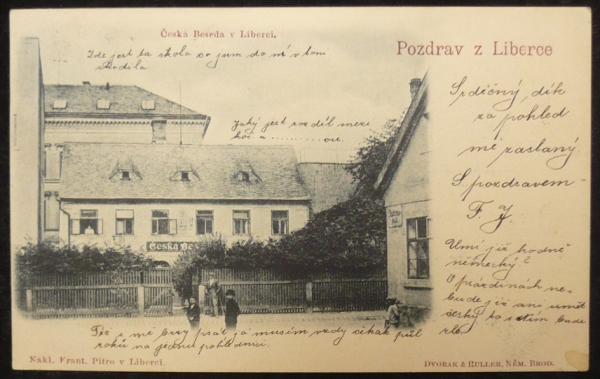 Česká Beseda v Liberci.
Pozdrav z Liberce
Zde jest ta škola co jsem do ní v loni
chodila
Jaký jest rozdíl mezi
Česká Bes
Srdečný dík
za pohled
mě zaslaný.
S pozdravem
F
Umí již hodně
německy?
O prázdninách ne-
bude již ani umět
česky
musím vždy čekat půl
roku na jednu pohlednici.
Nakl. Frant. Pitro v Liberci.
DVOŘÁK & RULLER, NĚM. BROD.